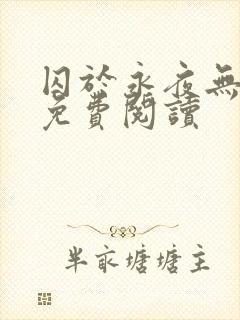 囚於永夜無
免費閱讀
半畝塘塘主